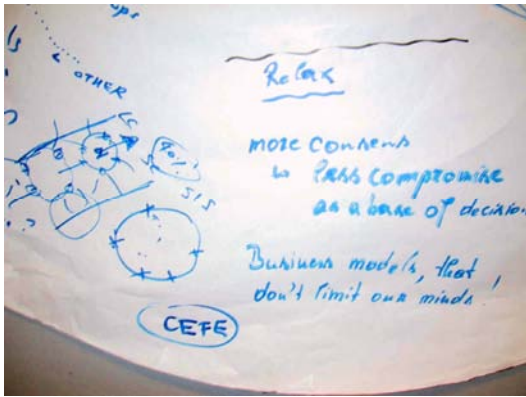 OTHER
Relax
more consens
↳ less compromise
as a base of decision
Business models, that
don't limit our minds!
CEFE